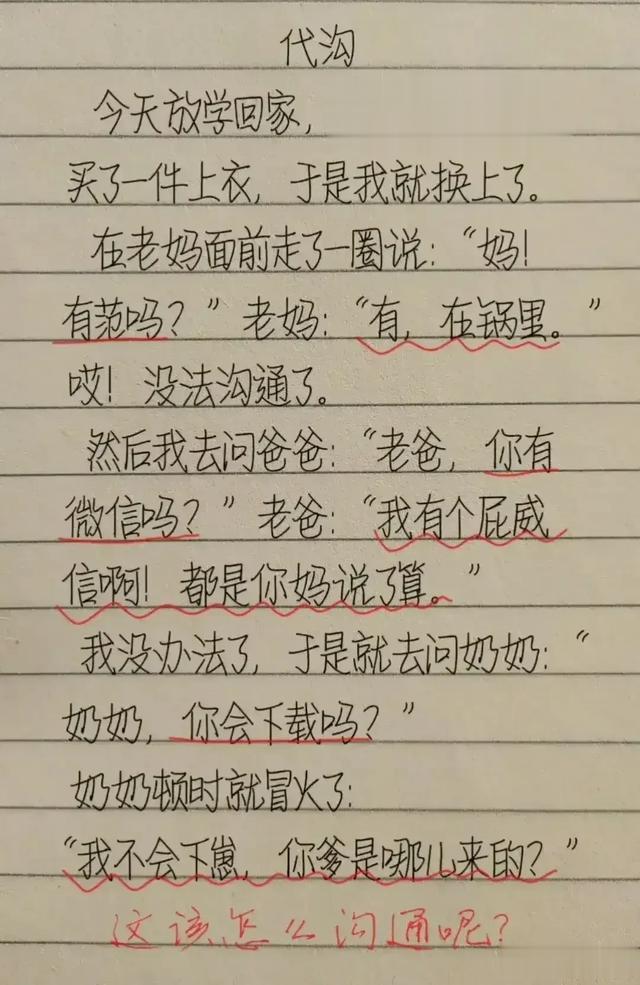 代沟
今天放学回家，
买了一件上衣，于是我就换上了。
在老妈面前走了一圈说：“妈！
有范吗？”老妈：“有，在锅里。”
哎！没法沟通了。
然后我去问爸爸：“老爸，你有
微信吗？”老爸：“我有个屁威
信啊！都是你妈说了算。”
我没办法了，于是就去问奶奶：“
奶奶，你会下载吗？”
奶奶顿时就冒火了：
“我不会下崽，你爹是哪儿来的？”
这该怎么沟通呢？